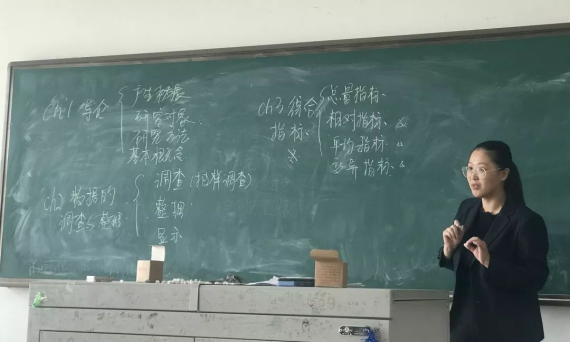 ch1 绪论
产生和发展
研究对象
研究方法
基本概念
ch2 数据的
调查与整理
调查(抽样调查)
整理
显示
ch3 综合
指标
总量指标
相对指标
平均指标
变异指标